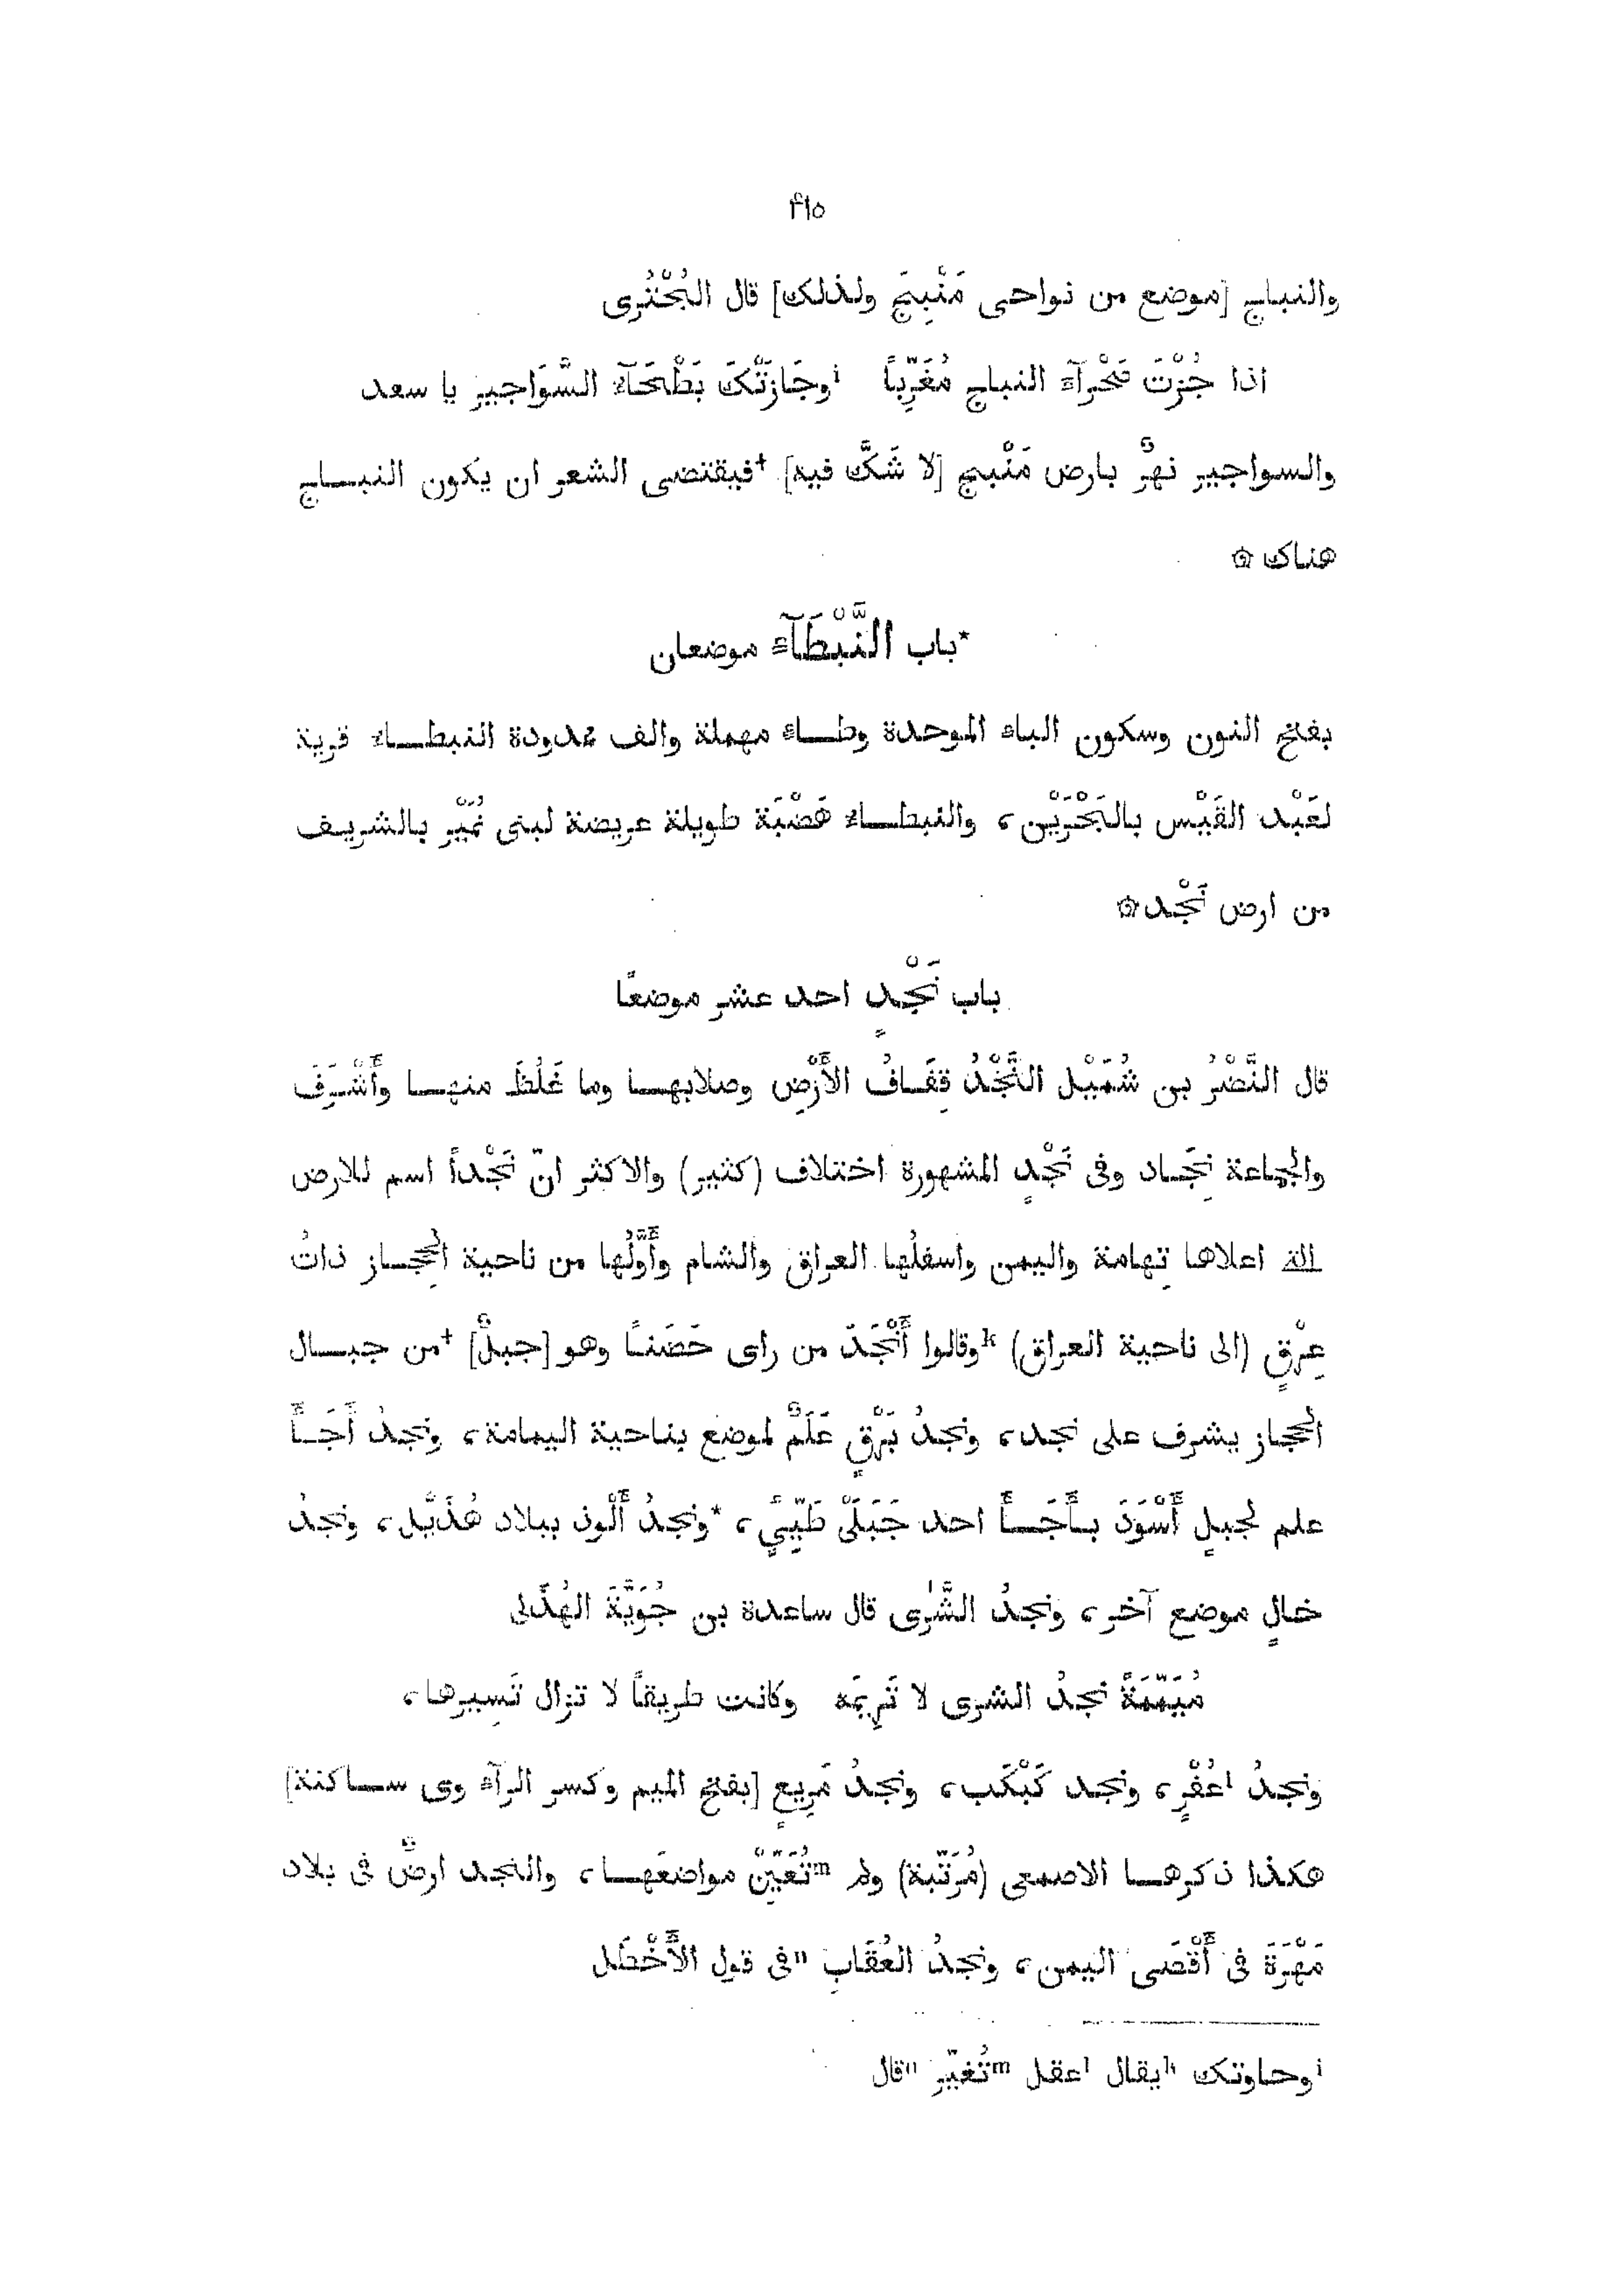 ٤١٥
والنباج [موضع من نواحى مَنْبِجَ ولذلك] قال البُحْتُرى
اذا جُزْتَ صَحْرآءَ النباج مُغَرِّبًا ⁱوجَازَتْكَ بَطْحَآءُ السَّوَاجير يا سعد
والسواجير نهرٌ بارض مَنْبج [لا شَكَّ فيه] †فيقتضى الشعر ان يكون النبــاج
هناك ۞
*باب النَّبْطَآء موضعان
بفتح النون وسكون الباء الموحدة وطــاء مهملة والف ممدودة النبطــاء قرية
لعَبْد القَيْس بالبَحْرَيْن، والنبطــاء هَضْبَة طويلة عريضة لبنى نُمَيْر بالشريف
من ارض نَجْد۞
باب نَجْدٍ احد عشر موضعًا
قال النَّضْرُ بن شُمَيْل النَّجْدُ قِفَافُ الأَرْض وصلابهــا وما غَلُظَ منهــا وأَشْرَفَ
والجماعة نِجَــاد وفى نَجْدٍ المشهورة اختلاف (كثير) والاكثر انّ نَجْداً اسم للارض
الله اعلاها تِهامة واليمن واسفلُها العراق والشام وأَوَّلُها من ناحية الحِجــاز ذاتُ
عِرْقٍ (الى ناحية العراق) ᵏوقالوا أَنْجَدَ من راى حَضَنــًا وهو [جبلٌ] †من جبــال
الحجاز يشرف على نجد، ونجدُ بَرْقٍ عَلَمٌ لموضع بناحية اليمامة، ونجدُ أَجَــأَ
علم لجبلٍ أَسْوَدَ بــأَجَــأَ احد جَبَلَىْ طَيِّىءٍ، *ونجدُ أَلْوذ ببلاد هُذَيْل، ونجدُ
خالٍ موضع آخر، ونجدُ الشَّرَى قال ساعدة بن جُوَيَّةَ الهُذَلى
مُيَمِّمَةً نجدُ الشرى لا تَرِيمُه وكانت طريقاً لا تزال تَسِيرها،
ونجدُ ˡعُفْرٍ، ونجد كَبْكَب، ونجدُ مَرِيعٍ [بفتح الميم وكسر الرآء وى ســاكنة]
هكذا ذكرهــا الاصمعى (مُرَتَّبة) ولم ᵐتُعَيَّنْ مواضعَهــا، والنجد ارضٌ فى بلاد
مَهْرَةَ فى أَقْصَى اليمن، ونجدُ العُقَابِ ⁿفى قول الأَخْطَل
ⁱوحاوتك ᵏيقال ˡعقل ᵐتُغيّر ⁿقال